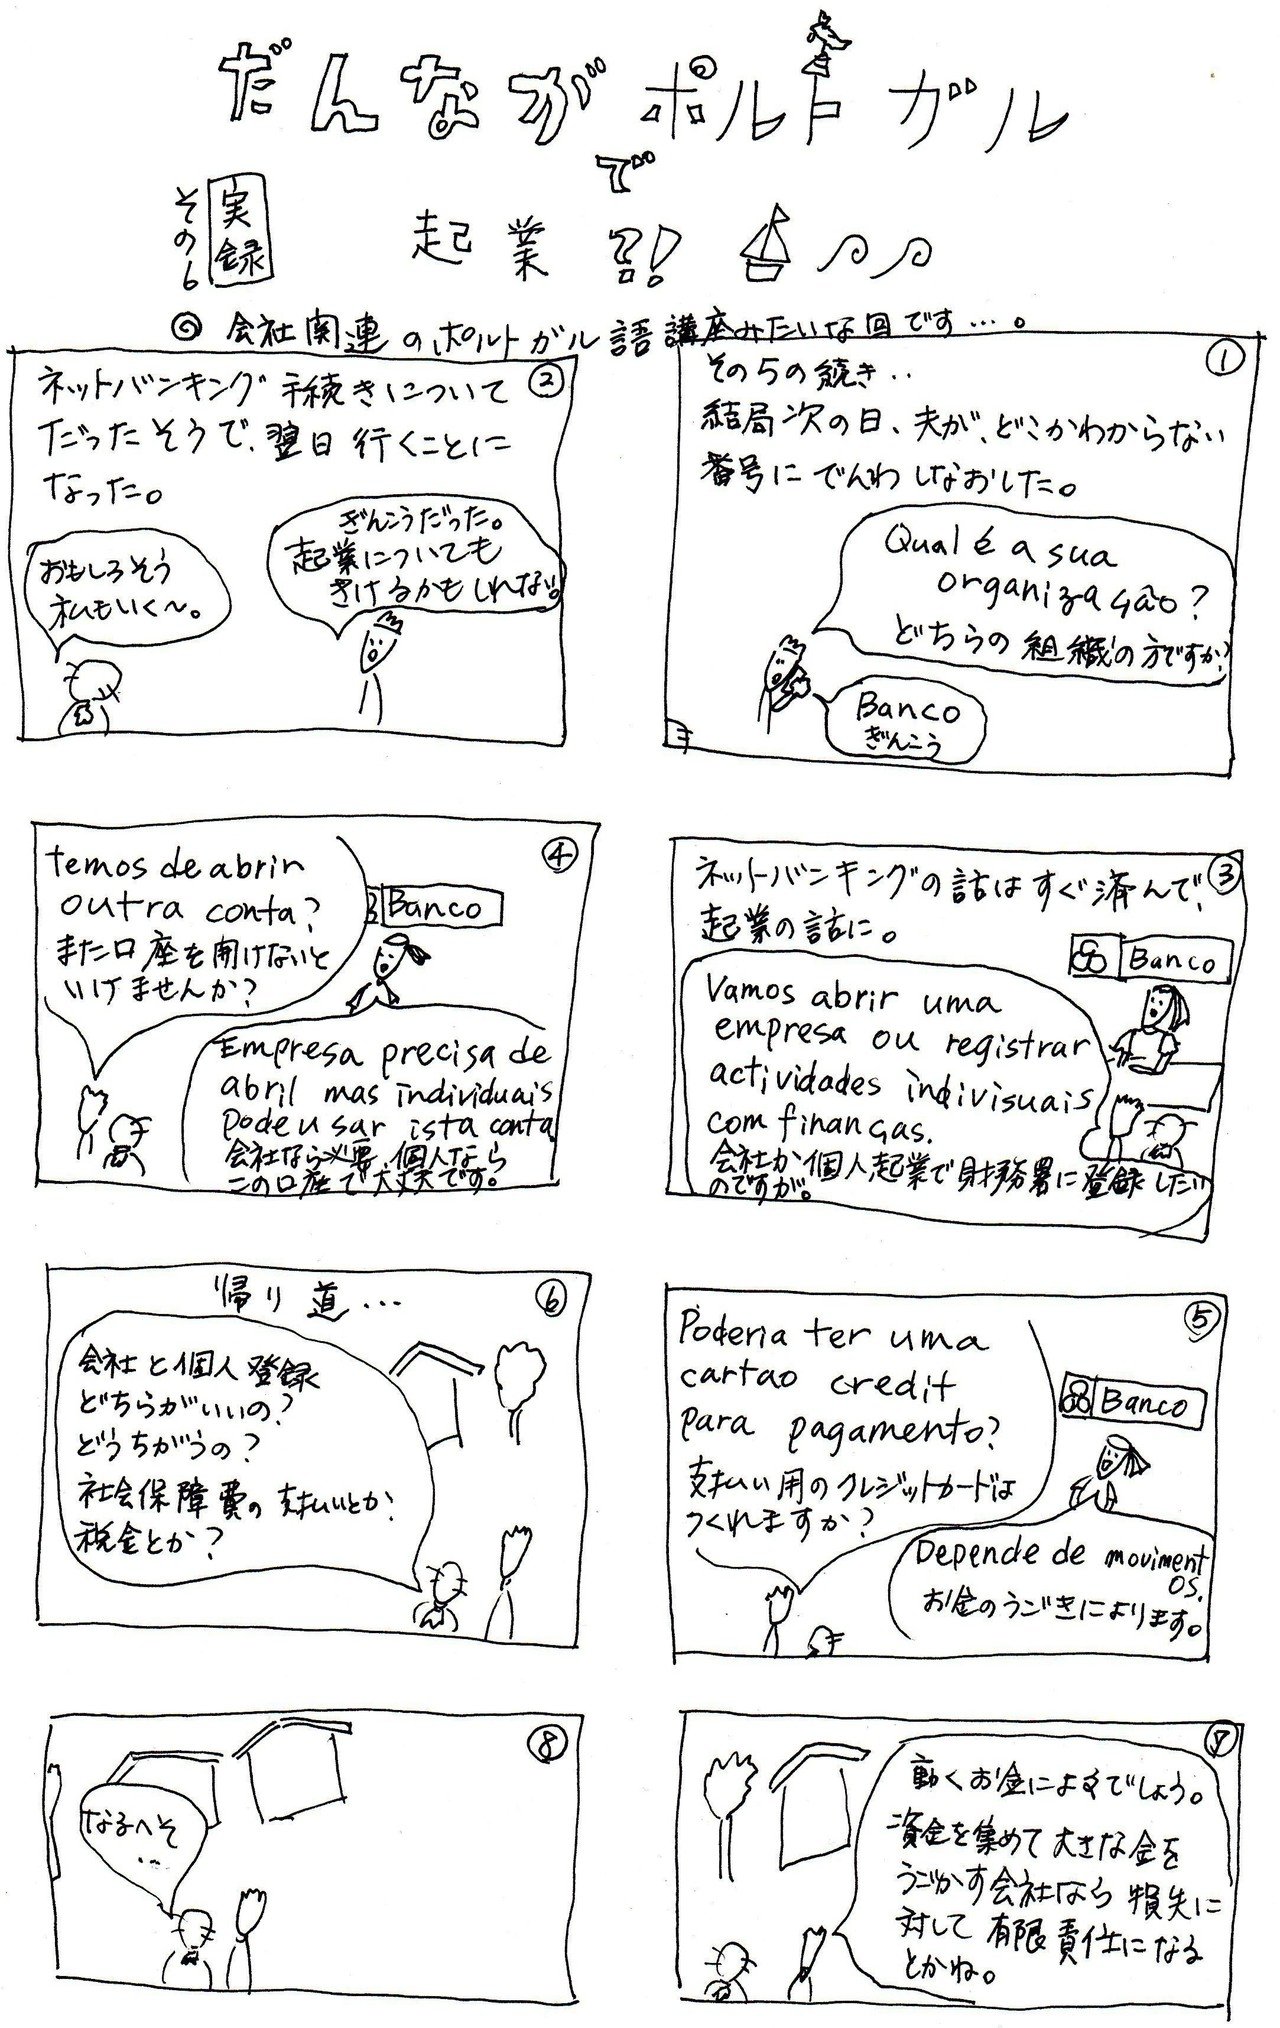 だんながポルトガル
で
起業?!
実録
その6
◎会社関連のポルトガル語講座みたいな回です…。
①
その5の続き‥
結局次の日、夫が、どこかわからない
番号にでんわしなおした。
Qual é a sua
organização?
どちらの組織の方ですか?
Banco
ぎんこう
②
ネットバンキング手続きについて
だったそうで、翌日行くことに
なった。
ぎんこうだった。
起業についても
きけるかもしれない。
おもしろそう
私もいく〜。
③
ネットバンキングの話はすぐ済んで、
起業の話に。
Banco
Vamos abrir uma
empresa ou registrar
actividades indivisuais
com finanças.
会社か個人起業で財務署に登録したい
のですが。
④
temos de abrir
outra conta?
また口座を開けないと
いけませんか?
Banco
Empresa precisa de
abril mas individuais
pode usar ista conta
会社なら必要、個人なら
この口座で大丈夫です。
⑤
Poderia ter uma
cartao credit
para pagamento?
支払い用のクレジットカードは
つくれますか?
Banco
Depende de moviment
os.
お金のうごきによります。
⑥
帰り道…
会社と個人登録
どちらがいいの?
どうちがうの?
社会保障費の支払いとか、
税金とか?
⑦
動くお金によるでしょう。
資金を集めて大きな金を
うごかす会社なら損失に
対して有限責任になる
とかね。
⑧
なるへそ
…